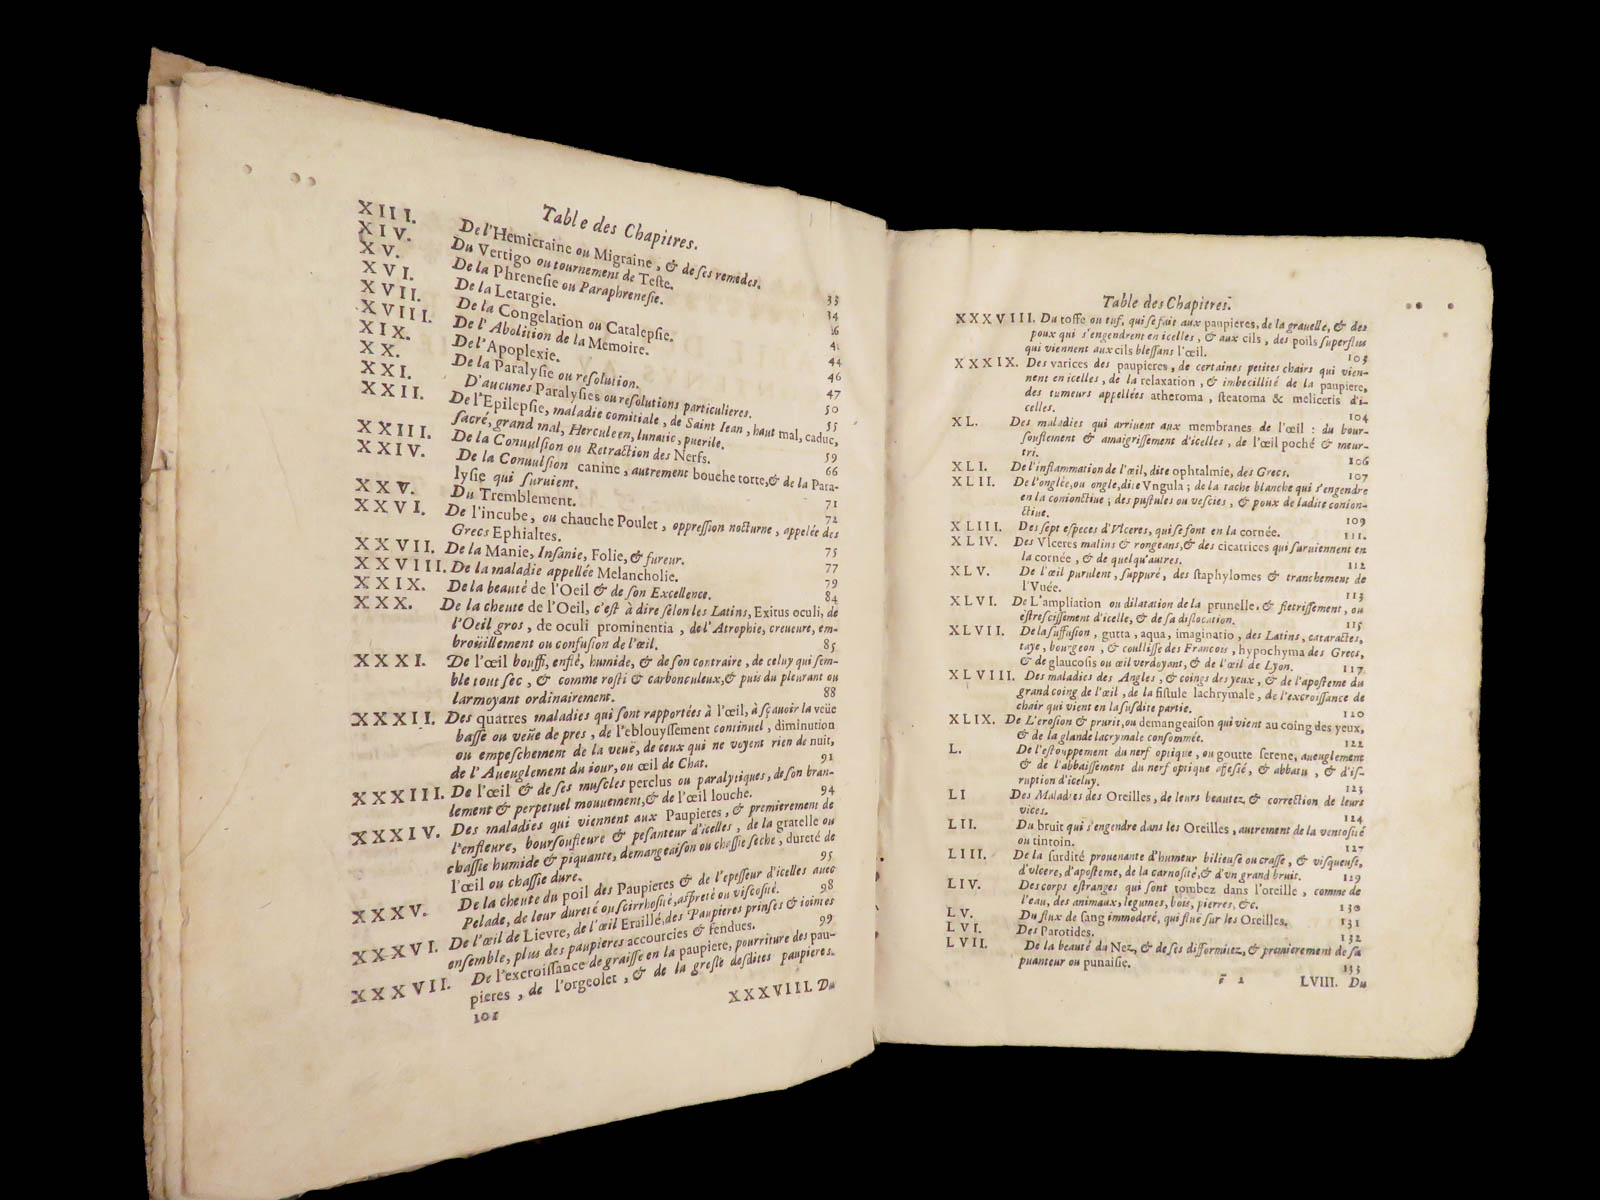 Table des Chapitres.
XIII. De l'Hemicraine ou Migraine, & de ses remedes. 33
XIV. Du Vertigo ou tournement de Teste. 34
XV. De la Phrenesie ou Paraphrenesie.
XVI. De la Letargie. 41
XVII. De la Congelation ou Catalepsie. 44
XVIII. De l'Abolition de la Memoire. 46
XIX. De l'Apoplexie. 47
XX. De la Paralysie ou resolution. 50
XXI. D'aucunes Paralysies ou resolutions particulieres. 55
XXII. De l'Epilepsie, maladie comitiale, de Saint Iean, haut mal, caduc,
sacré, grand mal, Herculeen, lunatic, puerile. 59
XXIII. De la Conuulsion ou Retraction des Nerfs. 66
XXIV. De la Conuulsion canine, autrement bouche torte, & de la Para-
lysie qui suruient. 71
XXV. Du Tremblement. 72
XXVI. De l'incube, ou chauche Poulet, oppression nocturne, appelée des
Grecs Ephialtes. 75
XXVII. De la Manie, Insanie, Folie, & fureur. 77
XXVIII. De la maladie appellée Melancholie. 79
XXIX. De la beauté de l'Oeil & de son Excellence. 84
XXX. De la cheute de l'Oeil, c'est à dire selon les Latins, Exitus oculi, de
l'Oeil gros, de oculi prominentia, de l'Atrophie, creueure, em-
broüillement ou confusion de l'œil. 85
XXXI. De l'œil bouffi, enflé, humide, & de son contraire, de celuy qui sem-
ble tout sec, & comme rosti & carbonculeux, & puis du pleurant ou
larmoyant ordinairement. 88
XXXII. Des quatres maladies qui sont rapportées à l'œil, à sçauoir la veüe
basse ou veüe de pres, de l'eblouyssement continuel, diminution
ou empeschement de la veuë, de ceux qui ne voyent rien de nuit,
de l'Aueuglement du iour, ou œil de Chat. 91
XXXIII. De l'œil & de ses muscles perclus ou paralytiques, de son bran-
lement & perpetuel mouuement, & de l'œil louche. 94
XXXIV. Des maladies qui viennent aux Paupieres, & premierement de
l'enfleure, boursoufleure & pesanteur d'icelles, de la gratelle ou
chassie humide & piquante, demangeaison ou chassie seche, dureté de
l'œil ou chassie dure. 95
XXXV. De la cheute du poil des Paupieres & de l'epesseur d'icelles auec
Pelade, de leur dureté ou scirrhosité, aspreté ou viscosité. 98
XXXVI. De l'œil de Lievre, de l'œil Eraillé, des Paupieres prinses & iointes
ensemble, plus des paupieres accourcies & fendues. 99
XXXVII. De l'excroissance de graisse en la paupiere, pourriture des pau-
pieres, de l'orgeolet, & de la gresle desdites paupieres.
101
XXXVIII. Du
Table des Chapitres.
XXXVIII. Du toffe ou tuf, qui se fait aux paupieres, de la grauelle, & des
poux qui s'engendrent en icelles, & aux cils, des poils superflus
qui viennent aux cils blessans l'œil. 103
XXXIX. Des varices des paupieres, de certaines petites chairs qui vien-
nent en icelles, de la relaxation, & imbecillité de la paupiere,
des tumeurs appellées atheroma, steatoma & meliceris d'i-
celles. 104
XL. Des maladies qui arriuent aux membranes de l'œil : du bour-
souflement & amaigrissement d'icelles, de l'œil poché & meur-
tri. 106
XLI. De l'inflammation de l'œil, dite ophtalmie, des Grecs. 107
XLII. De l'onglée, ou ongle, dite Vngula ; de la tache blanche qui s'engendre
en la conionctiue ; des pustules ou vescies, & poux de ladite conion-
ctiue. 109
XLIII. Des sept especes d'Vlceres, qui se font en la cornée. 111.
XLIV. Des Vlceres malins & rongeans, & des cicatrices qui suruiennent en
la cornée, & de quelqu'autres. 112
XLV. De l'œil purulent, suppuré, des staphylomes & tranchement de
l'Vuée. 113
XLVI. De L'ampliation ou dilatation de la prunelle, & fletrissement, ou
estrescissement d'icelle, & de sa dislocation. 115
XLVII. De la suffusion, gutta, aqua, imaginatio, des Latins, cataractes,
taye, bourgeon, & coullisse des Francois, hypochyma des Grecs,
& de glaucosis ou œil verdoyant, & de l'œil de Lyon. 117
XLVIII. Des maladies des Angles, & coings des yeux, & de l'aposteme du
grand coing de l'œil, de la fistule lachrymale, de l'excroissance de
chair qui vient en la susdite partie. 120
XLIX. De L'erosion & prurit, ou demangeaison qui vient au coing des yeux,
& de la glande lacrymale consommée. 122
L. De l'estouppement du nerf optique, ou goutte serene, aueuglement
& de l'abbaissement du nerf optique & abbatu, & d'is-
ruption d'iceluy. 123
LI Des Maladies des Oreilles, de leurs beautez & correction de leurs
vices. 124
LII. Du bruit qui s'engendre dans les Oreilles, autrement de la ventosité
ou tintoin. 127
LIII. De la surdité prouenante d'humeur bilieuse ou crasse, & visqueuse,
d'vlcere, d'aposteme, de la carnosité, & d'vn grand bruit. 129
LIV. Des corps estranges qui sont tombez dans l'oreille, comme de
l'eau, des animaux, legumes, bois, pierres, &c. 130
LV. Du flux de sang immoderé, qui fluë sur les Oreilles. 131
LVI. Des Parotides. 132
LVII. De la beauté du Nez, & de ses difformitez, & premierement de sa
puanteur ou punaisie. 133
LVIII. Du